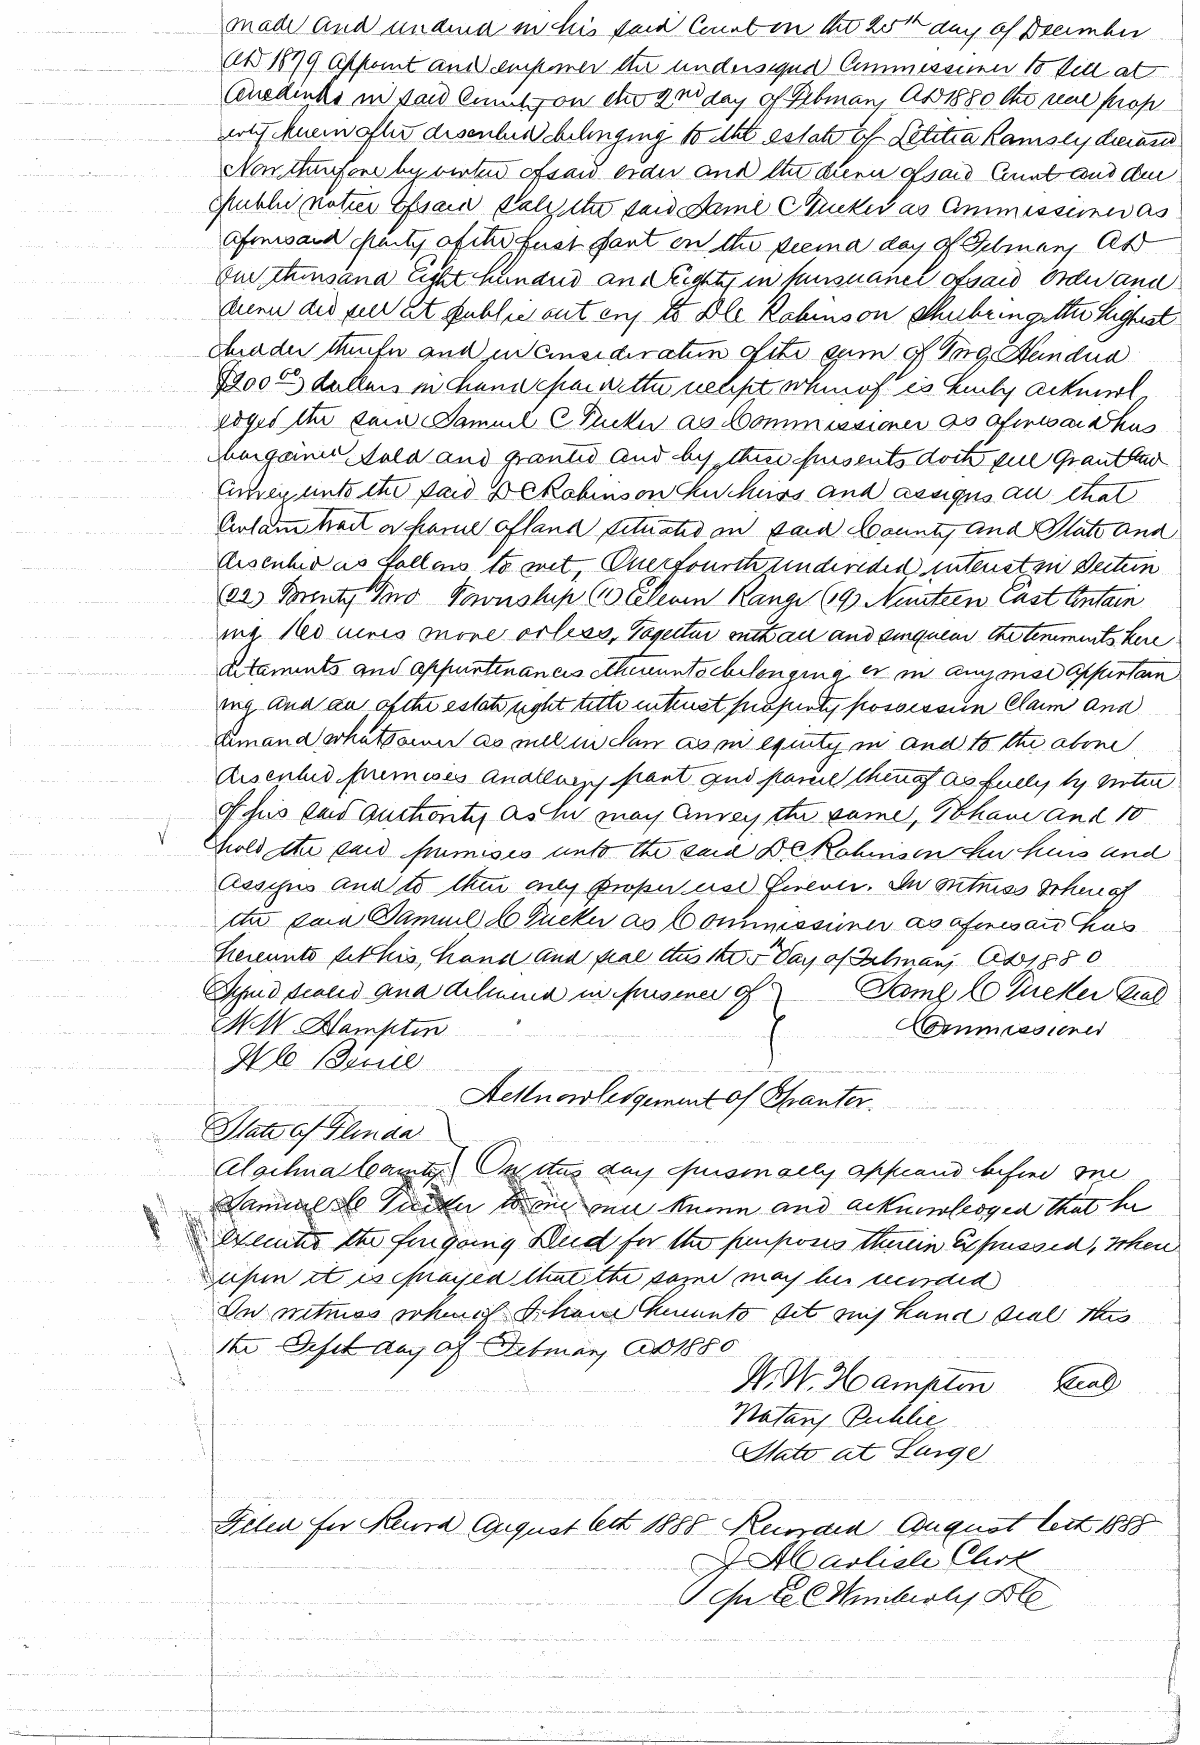 made and entered in his said Court on the 20th day of December
AD 1879 appoint and empower the undersigned Commissioner to sell at
in said County on the 2nd day of February AD 1880 the real prop
erty herein after described belonging to the estate of Letitia Ramsey deceased
Now therefore by virtue of said order and the decree of said Court and due
public notice of said sale, the said Saml C Tucker as Commissioner as
aforesaid party of the first part on the second day of February AD
One thousand Eight hundred and Eighty in pursuance of said order and
decree did sell at public out cry to D C Robinson she being the highest
bidder therefor and in consideration of the sum of Two Hundred
$200 00 dollars in hand paid the receipt whereof is hereby acknowl
edged the said Samuel C Tucker as Commissioner as aforesaid has
bargained sold and granted and by these presents doth sell grant and
Convey unto the said D C Robinson her heirs and assigns all that
Certain tract or parcel of land situated in said County and State and
described as follows to wit, One fourth undivided interest in Section
(22) Twenty Two Township (11) Eleven Range (19) Nineteen East Contain
ing 160 acres more or less, Together with all and singular the tenements here
ditaments and appurtenances thereunto belonging or in any wise appertain
ing and all of the estate right title interest property possession Claim and
demand whatsoever as well in law as in equity in and to the above
described premises and every part and parcel thereof as fully by virtue
of his said authority as he may Convey the same, To have and to
hold the said premises unto the said D. C Robinson her heirs and
assigns and to their only proper use forever. In witness whereof
the said Samuel C Tucker as Commissioner as aforesaid has
hereunto set his, hand and seal this the 5th day of February AD 1880
Signed sealed and delivered in presence of Saml C Tucker Seal
W W Hampton Commissioner
W C Bevill
Acknowledgement of Grantor.
State of Florida
Alachua County On this day personally appeared before me
Samuel C Tucker to me well known and acknowledged that he
executed the foregoing Deed for the purposes therein Expressed, where
upon it is prayed that the same may be recorded
In witness whereof I have hereunto set my hand seal this
the day of February AD 1880
W. W. Hampton Seal
Notary Public
State at Large
Filed for Record August 6th 1888 Recorded August 6th 1888
J A Carlisle Clerk
per E C Wimberly DC